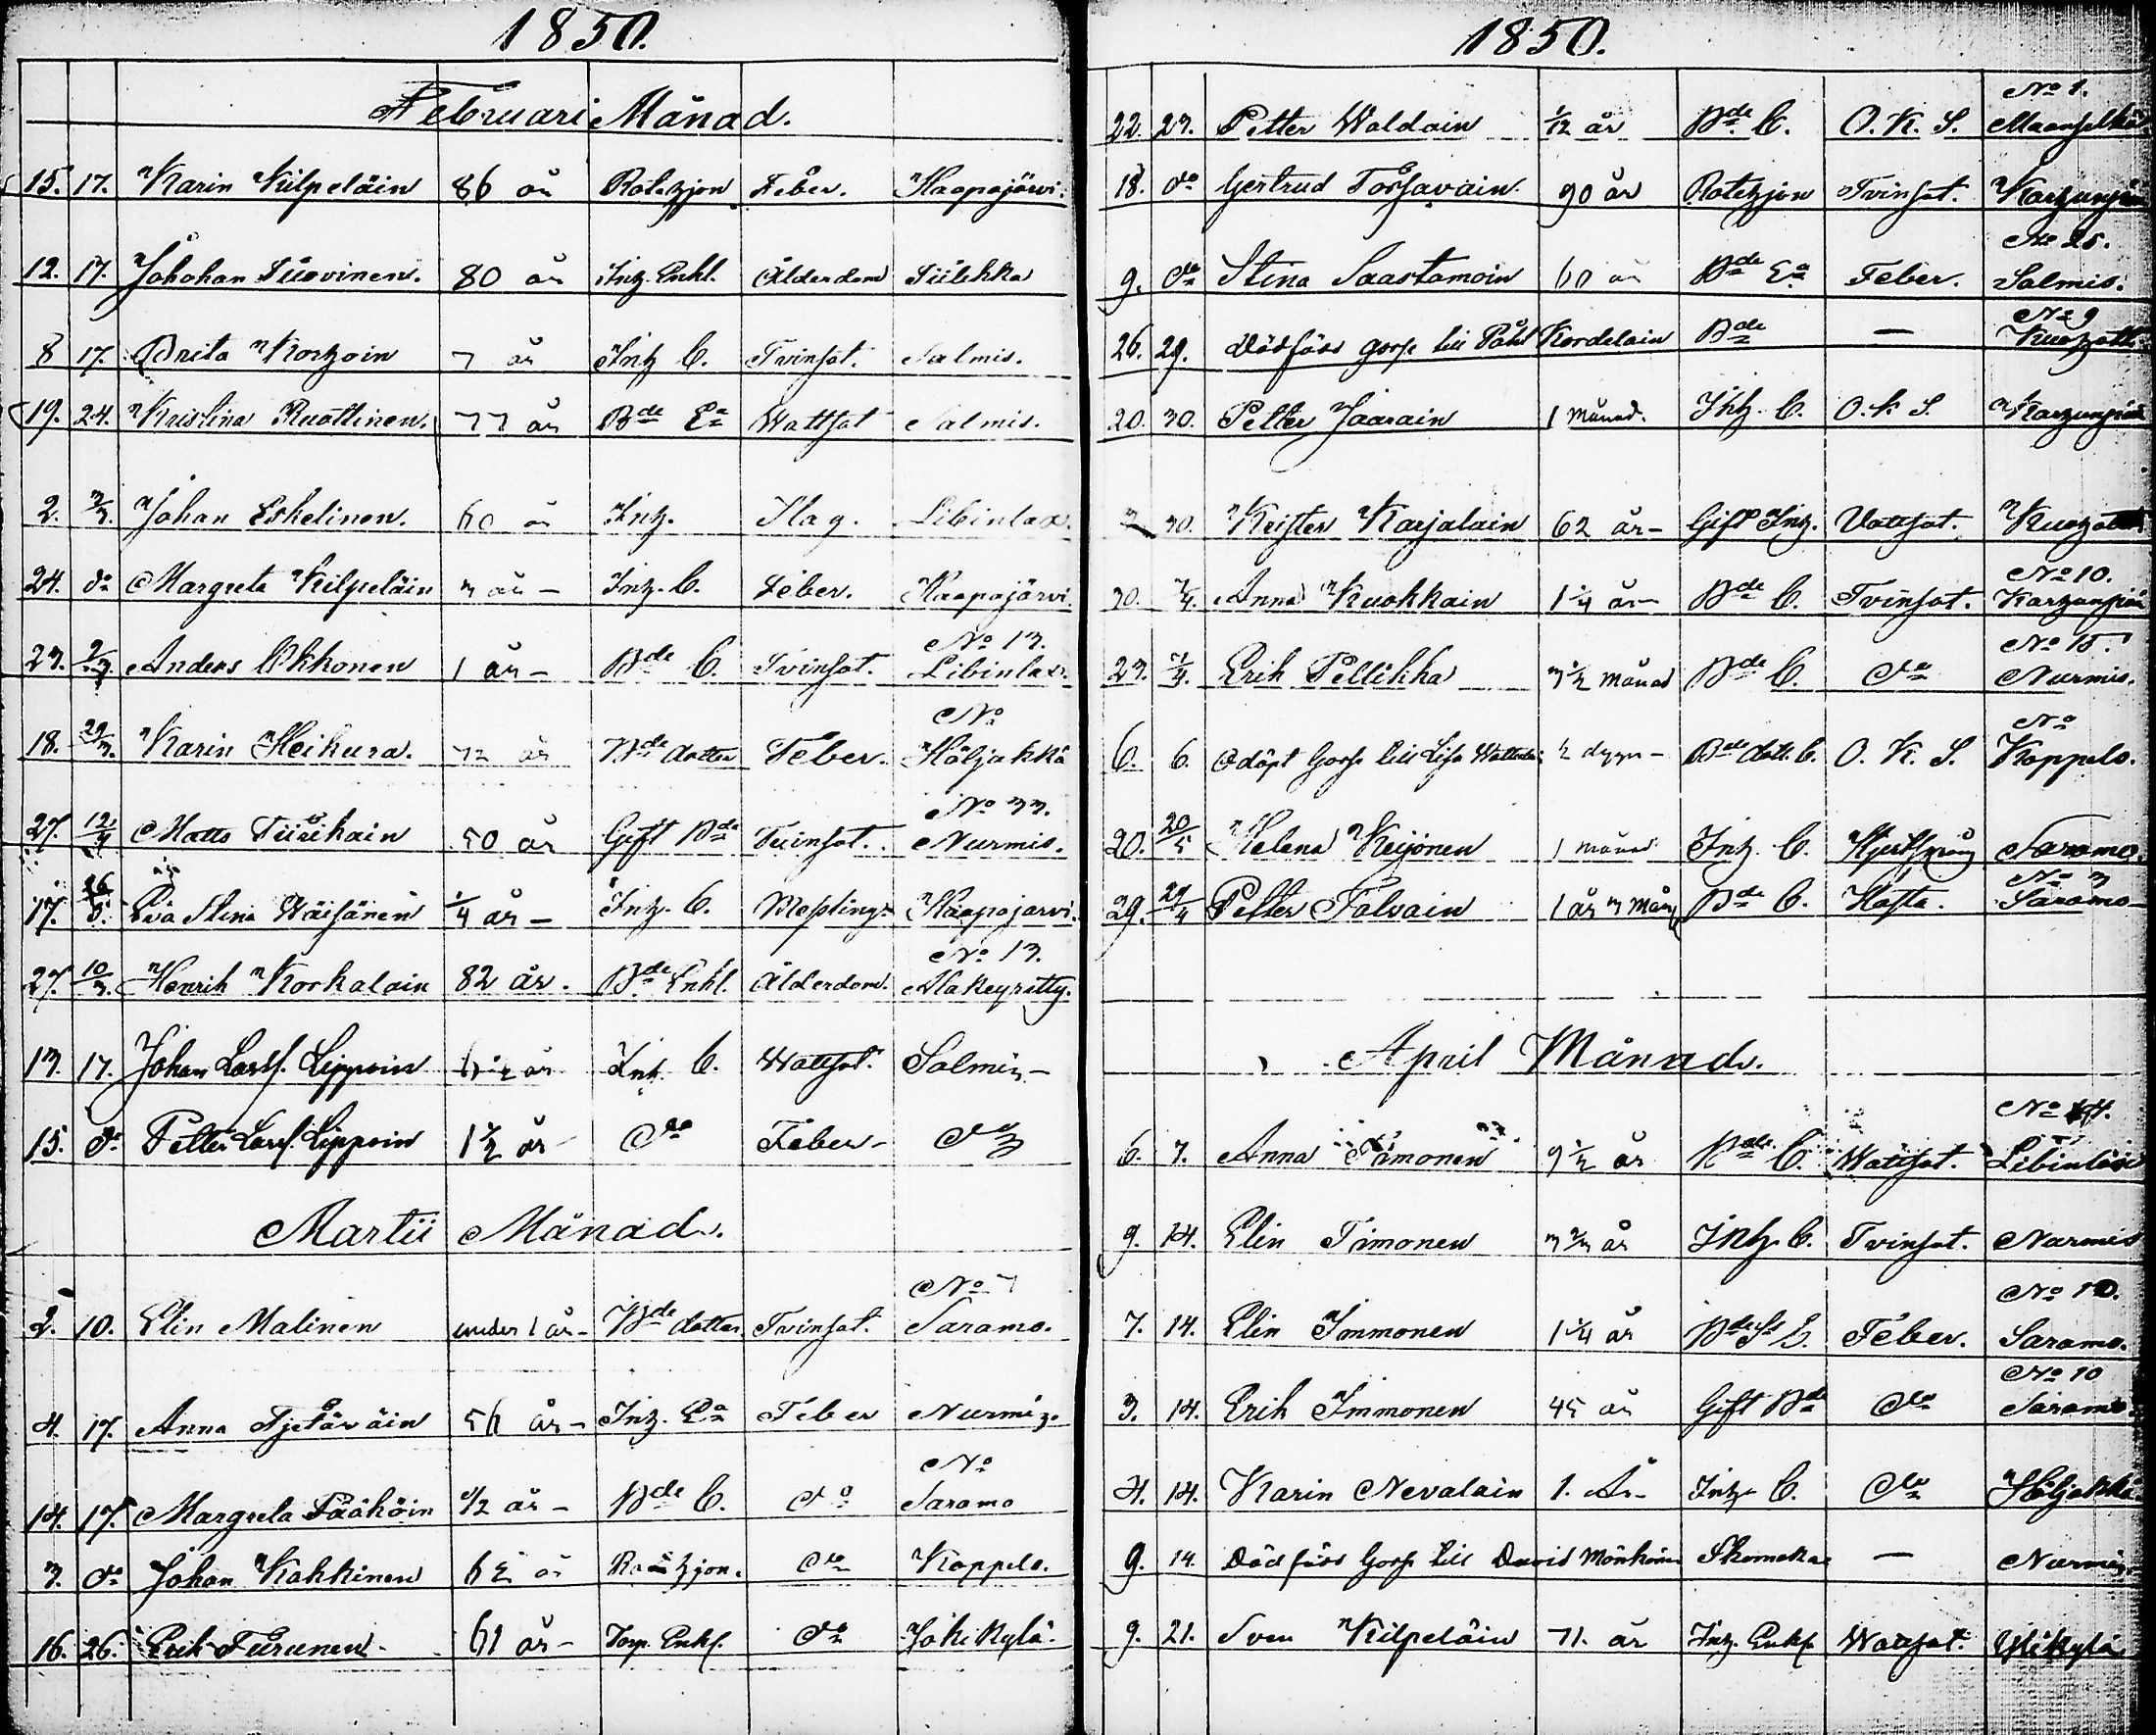 1850.
Februari Månad.
15. 17. Karin Kilpeläin 86 år Rotehjon Feber. Haapajärvi.
12. 17. Johohan Turvinen. 80 år Inh. Enkl. Ålderdom
8 17. Brita Korhoin 7 år Inh C. Tvinsot. Salmis.
19. 24. Kristina Ruottinen. 77 år Bde Ea Wattsot Salmis.
2. 3/3. Johan Eskelinen. 60 år Inh. Slag. Libinlax.
24. do Margreta Kilpeläin 3 år – Inh. C. Feber. Haapajärvi.
No 13.
23. Anders Okkonen 1 år – Bde C. Tvinsot. Libinlax.
No
18. Karin Heikura. 72 år Bde dotter Feber. Höljakkä
No 33.
27. 12/4 Matts Tiirikain 50 år Gift Bde Tvinsot. Nurmis.
17. 26/5. Eva Stina Wäisänen 1/4 år – Inh. C. Messling Haapajarvi.
No 13.
27. 10/3. Henrik Korkalain 82 år. Bde Enkl. Ålderdom. Alakeyritty.
13. 17. Johan Larss. Lipponin år Inh. C. Wattsot. Salmis –
15. do Petter Larss. Lipponin 1 1/2 år do Feber – do
Martii Månad.
No 7
2. 10. Elin Malinen under 1 år – Bde dotter Tvinsot. Saramo.
4. 17. Anna år – Inh. Ea Feber Nurmis.
No
14. 17. Margreta Pääköin 1/2 år – Bde C. do Saramo
3. do Johan Kakkinen år do Koppelo.
16. 26. Erik Turunen – 61 år – Torp. Enkl. do Jokikylä.
1850.
No 1.
22. 23. Petter Waldain 1/12 år Bde C. O. K. S. Maanselkä
18. do Gertrud Tossavain. 90 år Rotehjon Tvinsot. Karhunpää
No 25.
9. do Stina Saastamoin 60 år Bde Ea Feber. Salmis.
No 9
26. 29. Dödföds gosse till Påhl Kordelain Bde –
20. 30. Petter Jaarain 1 Månad. Inh. C. O. K. S. Karhunpää
30. Krister Karjalain 62 år – Gift Inh. Vattsot.
No 10.
30. 7/4. Anna Kuokkain 1 1/4 år – Bde C. Tvinsot. Karhunpää
No 15.
23. 7/4. Erik Pellikka 3 1/2 månad Bde C. do Nurmis.
No
6. 6. Odöpt Gosse till Lisa 1/2 dygn – Bde dott. C. O. K. S. Koppelo.
20. 20/5 Helena Keijonen 1 månad Inh. C. Hjertsprång Saramo.
No 3
29. 29/4 Petter Tolvain 1 år 3 mån Bde C. Hosta. Saramo –
April Månad.
No 14.
6. 7. Anna Timonen 9 1/2 år Bde C. Wattsot. Libinlax
9. 14. Elin Timonen 3 2/3 år Inh. C. Tvinsot. Nurmis
No 10.
7. 14. Elin Immonen 1 1/4 år Feber. Saramo.
No 10
3. 14. Erik Immonen 45 år Gift Bde do Saramo.
4. 14. Karin Nevalain 1. År – Inh. C. do Höljakkä
9. 14. Död föds Gosse till David Mönkönen Skomakar – Nurmis.
9. 21. Sven Kilpeläin 71. år Inh. Enkl. Wattsot. Ylikylä